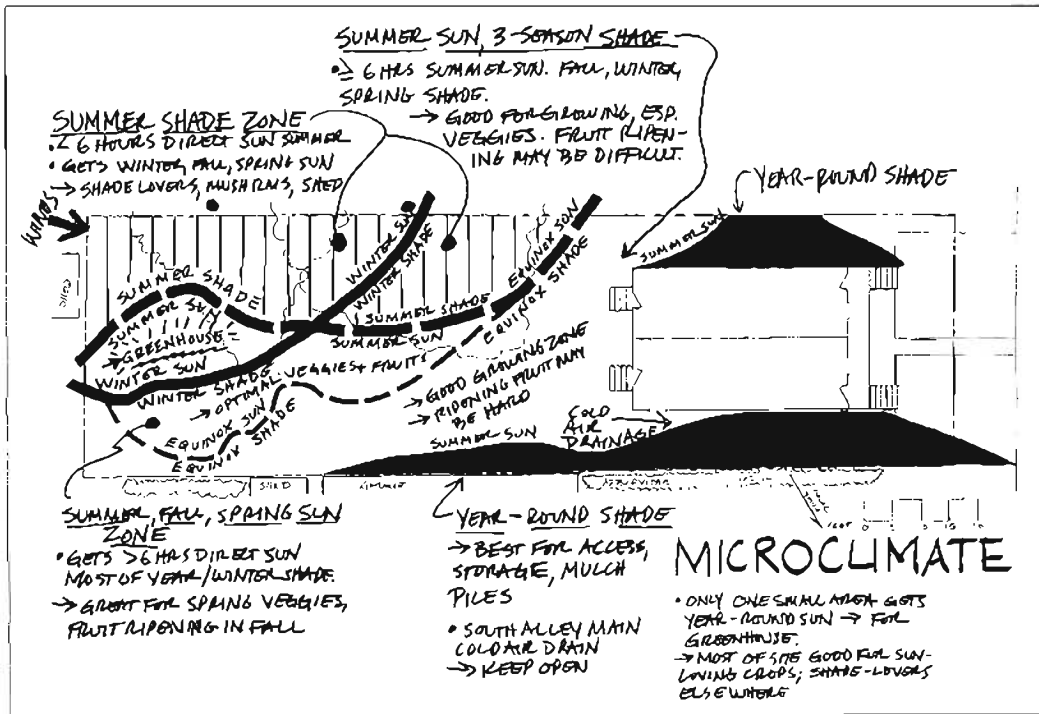 SUMMER SUN, 3-SEASON SHADE
• ≥ 6 HRS SUMMER SUN. FALL, WINTER,
SPRING SHADE.
→ GOOD FOR GROWING, ESP.
VEGGIES. FRUIT RIPEN-
ING MAY BE DIFFICULT.
SUMMER SHADE ZONE
• < 6 HOURS DIRECT SUN SUMMER
• GETS WINTER, FALL, SPRING SUN
→ SHADE LOVERS, MUSHRMS, SHED
YEAR-ROUND SHADE
WINDS
SHED
SUMMER SHADE
SUMMER SUN
→ GREENHOUSE
WINTER SUN
WINTER SHADE
WINTER SUN
WINTER SHADE
SUMMER SHADE
SUMMER SUN
EQUINOX SUN
EQUINOX SHADE
SUMMER SUN
→ OPTIMAL VEGGIES + FRUIT
EQUINOX SUN
EQUINOX SHADE
→ GOOD GROWING ZONE
→ RIPENING FRUIT MAY
BE HARD
SUMMER SUN
COLD
AIR
DRAINAGE
SHED
SUMMER, FALL, SPRING SUN
ZONE
• GETS >6 HRS DIRECT SUN
MOST OF YEAR/WINTER SHADE.
→ GREAT FOR SPRING VEGGIES,
FRUIT RIPENING IN FALL
YEAR-ROUND SHADE
→ BEST FOR ACCESS,
STORAGE, MULCH
PILES
• SOUTH ALLEY MAIN
COLD AIR DRAIN
→ KEEP OPEN
FEET 0 5 10
MICROCLIMATE
• ONLY ONE SMALL AREA GETS
YEAR-ROUND SUN → FOR
GREENHOUSE.
→ MOST OF SITE GOOD FOR SUN-
LOVING CROPS; SHADE-LOVERS
ELSEWHERE